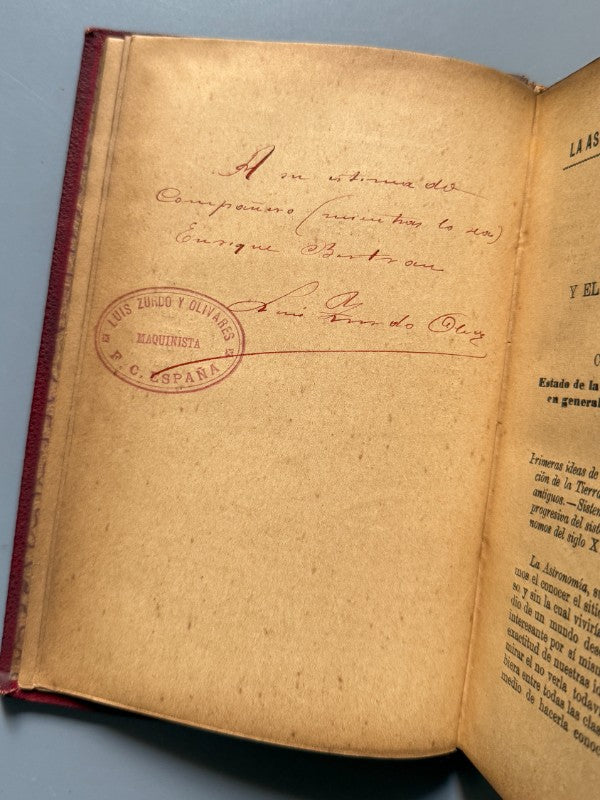 A su estimado
Compañero (mientras lo sea)
Enrique Bertran
Luis Zurdo Oliv
LUIS ZURDO Y OLIVARES
MAQUINISTA
F. C. ESPAÑA
LA AS
Y EL
C
Estado de la
en general
Primeras ideas de
ción de la Tierra
antiguos.—Siste
progresiva del sist
nomos del siglo X
La Astronomía, su
mos el conocer el siti
so y sin la cual viviría
dio de un mundo desc
interesante por sí mism
exactitud de nuestras id
mirar el no verla todav
biera entre todas las clas
medio de hacerla conoc